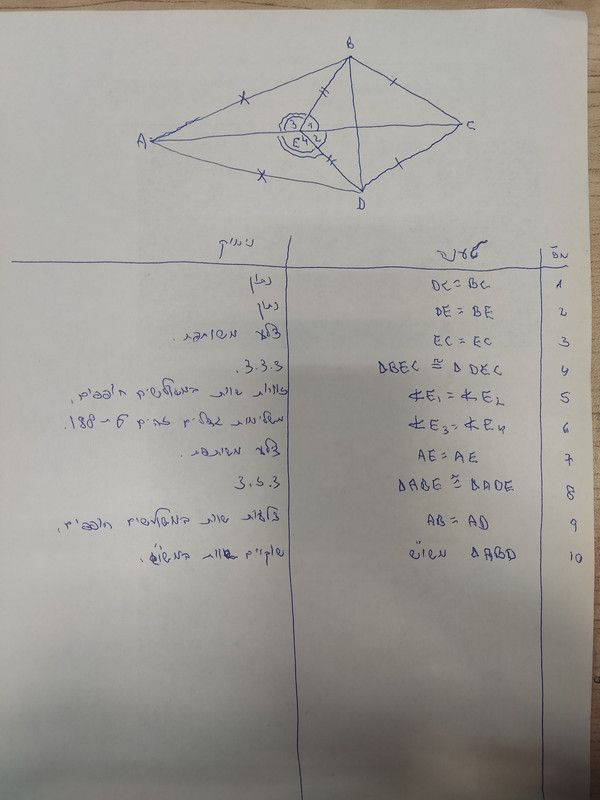 B
A
C
D
3 1
E 4 2
מס' טענה נימוק
1 DC = BC נתון
2 DE = BE נתון
3 EC = EC צלע משותפת.
4 ΔBEC ≅ ΔDEC צ.צ.צ.
5 ∢E₁ = ∢E₂ זוויות שוות במשולשים חופפים.
6 ∢E₃ = ∢E₄ משלימות לגדלים זהים ל-180.
7 AE = AE צלע משותפת.
8 ΔABE ≅ ΔADE צ.ז.צ
9 AB = AD צלעות שוות במשולשים חופפים.
10 ΔABD משו"ש שוקיים שוות במשו"ש.